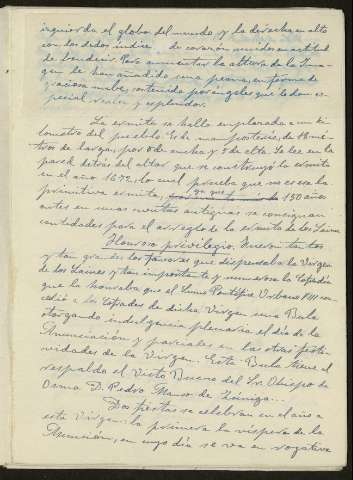 izquierda el globo del mundo y la derecha en alto
con los dedos índice y de corazón unidos en actitud
de bendecir. Para aumentar la altura de la Ima-
gen le han añadido una peana, en forma de
graciosa nube, sostenida por ángeles que le dan es-
pecial realce y esplendor.
La ermita se halla emplazada a un ki-
lómetro del pueblo. Es de mampostería, de 18 me-
tros de larga, por 8 de ancha y 5 de alta. Se lee en la
pared detrás del altar que se construyó la ermita
en el año 1672, lo cual prueba que no es era la
primitiva ermita, ya que 150 años
antes en unas cuentas antiguas se consignan
cantidades para el arreglo de la ermita de los Laines
Honroso privilegio. Fueron tantos
y tan grandes los favores que dispensaba la Virgen
de los Laines y tan importante y numerosa la Cofradía
que la honraba que el Sumo Pontífice Urbano VIII con-
cedió a los Cofrades de dicha Virgen una Bula
otorgando indulgencia plenaria el día de la
Anunciación y parciales en las otras festi-
vidades de la Virgen. Esta Bula tiene al
respaldo el Visto Bueno del Sr. Obispo de
Osma D. Pedro de Zúñiga.
Dos fiestas se celebran en el año a
esta Virgen: la primera la víspera de la
Ascensión, en cuyo día se va en rogativa